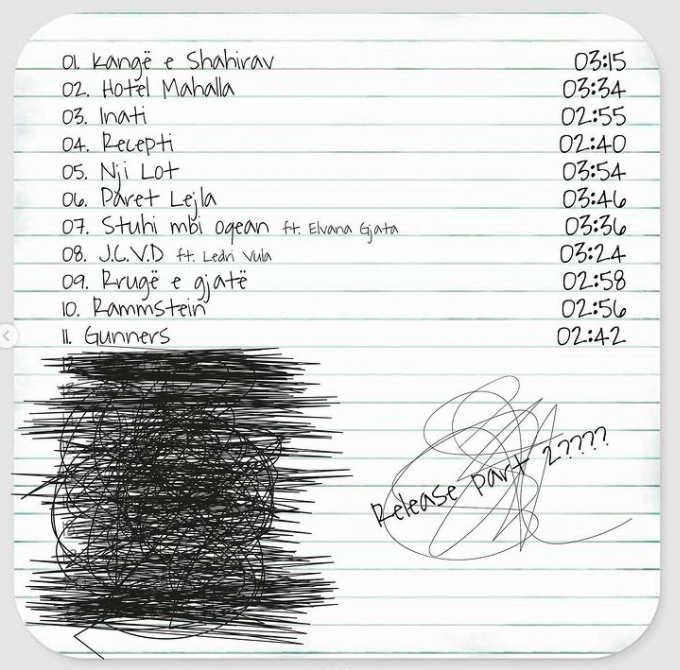 01. Kangë e Shahirav 03:15
02. Hotel Mahalla 03:34
03. Inati 02:55
04. Recepti 02:40
05. Nji Lot 03:54
06. Paret Lejla 03:46
07. Stuhi mbi oqean ft. Elvana Gjata 03:36
08. J.C.V.D ft. Ledri Vula 03:24
09. Rrugë e gjatë 02:58
10. Rammstein 02:56
11. Gunners 02:42
Release part 2????